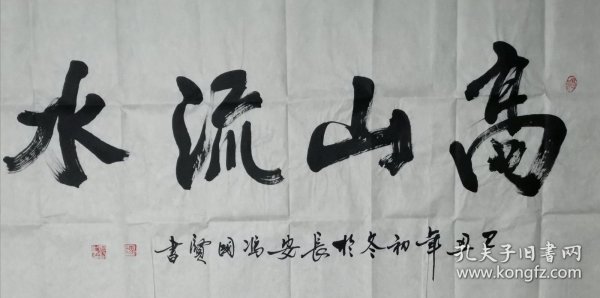 高山流水
己丑年初冬於長安馮国賢書
孔夫子旧书网
www.kongfz.com